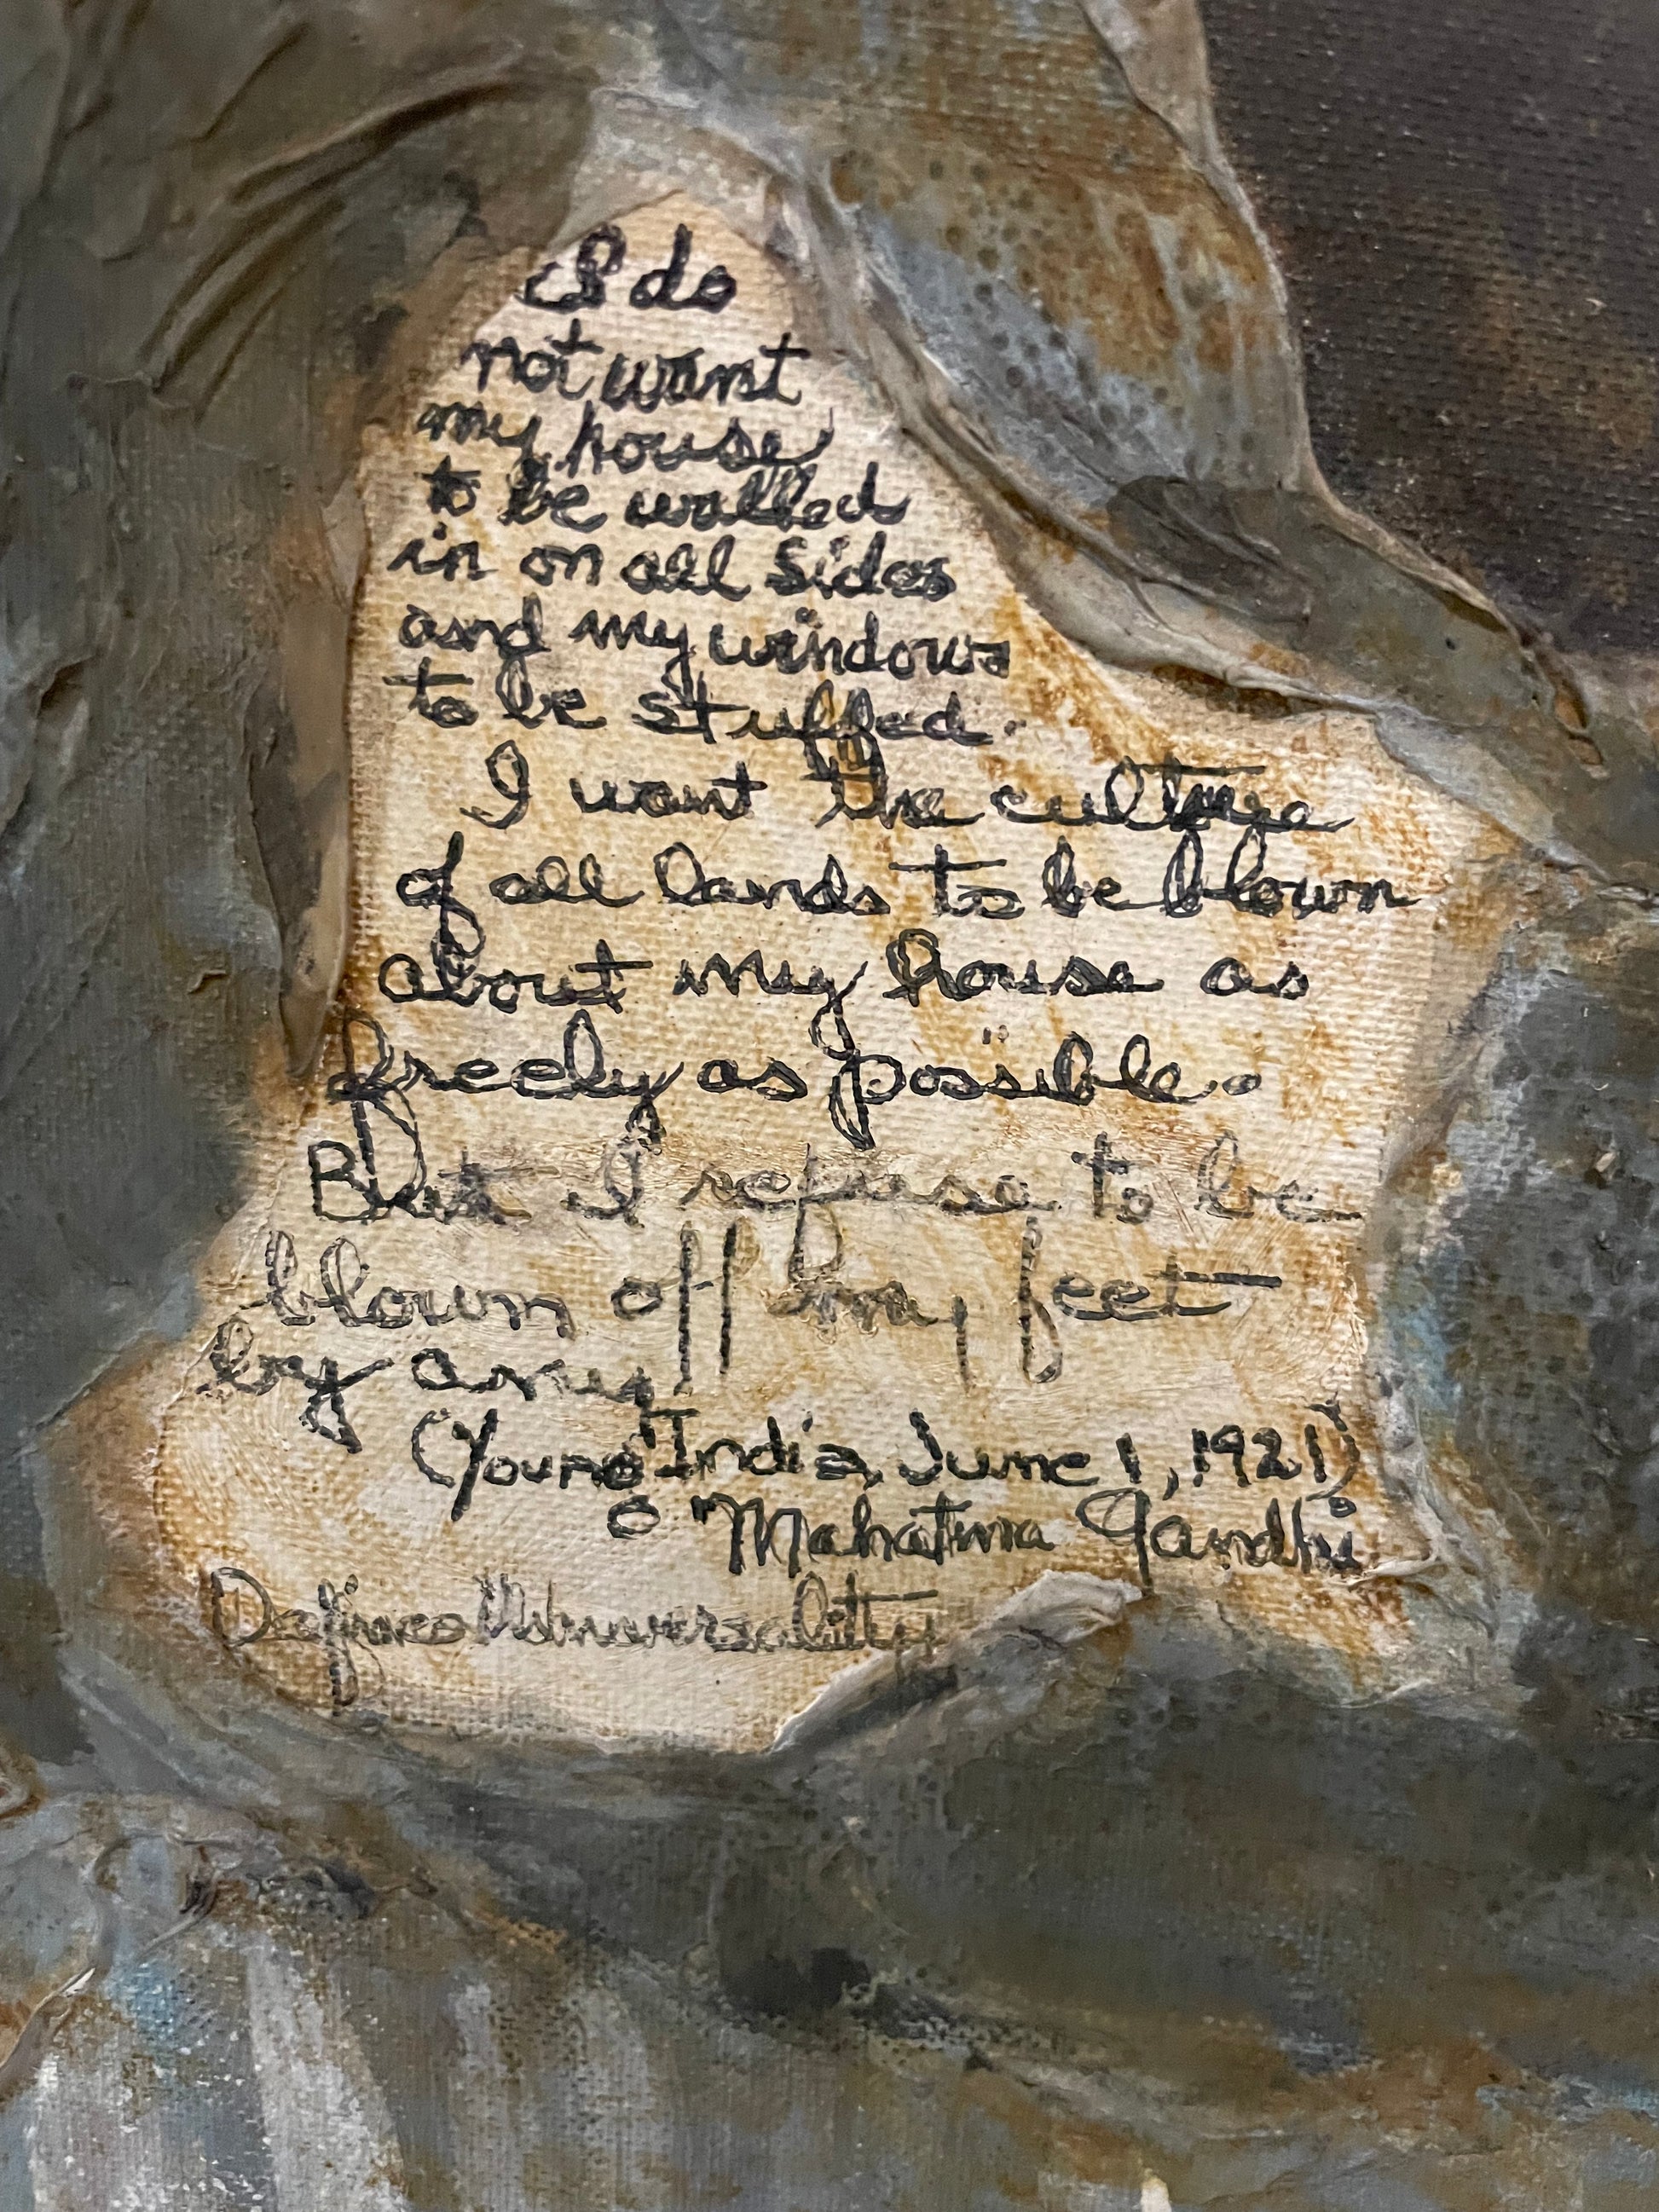 I do
not want
my house
to be walled
in on all sides
and my windows
to be stuffed.
I want the culture
of all lands to be blown
about my house as
freely as possible.
But I refuse to be
blown off my feet
by any
(Young India, June 1, 1921)
"Mahatma Gandhi
Defines